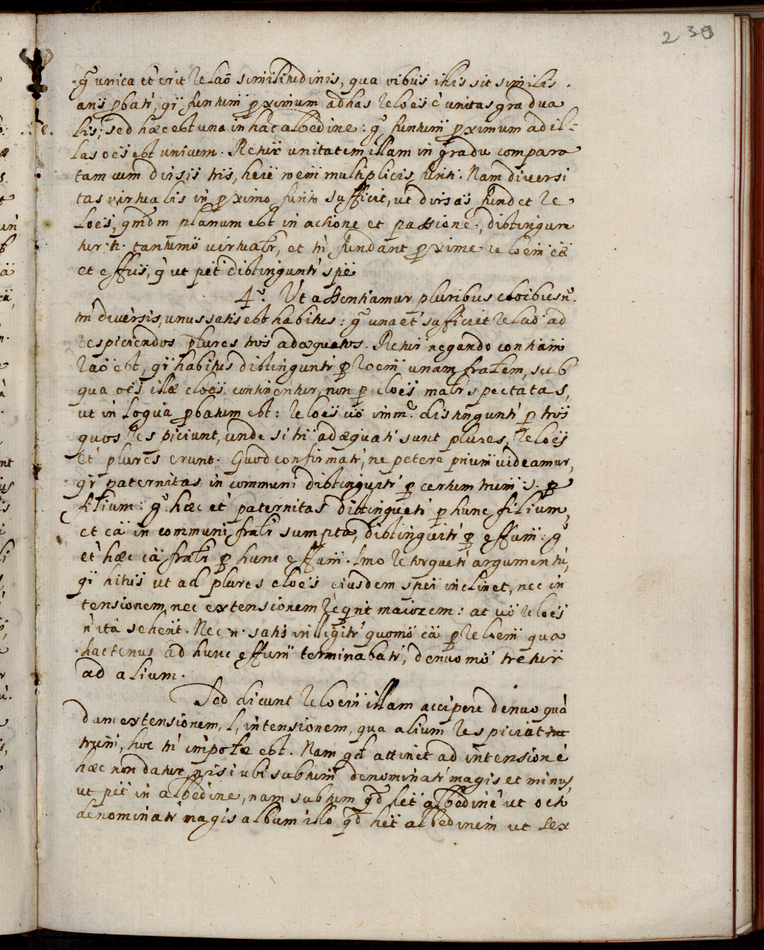 239
g. unica et erit relaõ similitudinis, qua vibus ihis sit similis.
ans pbati, qi funtum pximum ad has reloẽs ẽ unitas gradua
lis, sed hæc est una in hac albedine: g. funtum pximum ad il-
las oẽs est unicum. Rẽtur unitatem illam in gradu compara
tam cum divisis tris, heïe roem multiplicis funti. Nam diversi
tas virtualis in pximo funto sufficit, ut divisas fundet re
loẽs, qmdm planum est in actione et passione, distingun
tur n. tantumo virtualr, et tñ fundant pxime reloẽm cæ
et effus, q. ut pet distinguntr spẽ
4.º Ut assentiamur pluribus cloibus n.
tm diversis, unus satis est habitus: g. una et sufficiet relaõ ad
respiciendos plures tros adæquatos. Rẽtur negando conñam
raõ est, qi habitus distinguntr p roem unam fralem, sub
qua oẽs illæ cloẽs continentur, non p cloẽs malr spectatas,
ut in logua pbatum est: reloẽs vo imm. distinguntr p tros
quos respiciunt, unde si tri adæquati sunt plures, reloẽs
et plures erunt. Quod confirmatr, ne petere prium videamur,
qr paternitas in communi distinguitr p certum trum s. p
filium: g. hæc et paternitas distinguetr p hunc filium
et cã in communi fralr sumpta, distinguitr p effum: g.
et hæc cã fralr p hunc effum. Imo retorquetr argumentũ,
qi hitus ut ad plures cloẽs eiusdem spei inclinet, nec in
tensionem, nec extensionem reqrit maiorem: at vo reloẽs
n ita se hent. Nec n. satis intelligitr quomo cã p relaẽm qua
hactenus ad hunc effum terminabatr, denuo mo refertur
ad alium.
Sed dicunt reloẽm illam accipere denuo quã
dam extensionem, l, intensionem, qua alium respiciat
trum, hoc tñ impole est. Nam qd attinet ad intensionẽ
hæc non datur, nisi ubi subtum denominatr magis et minus,
ut pet in albedine, nam subtum qd het albedinẽ ut octo
denominatr magis album illo qd het albedinem ut sex